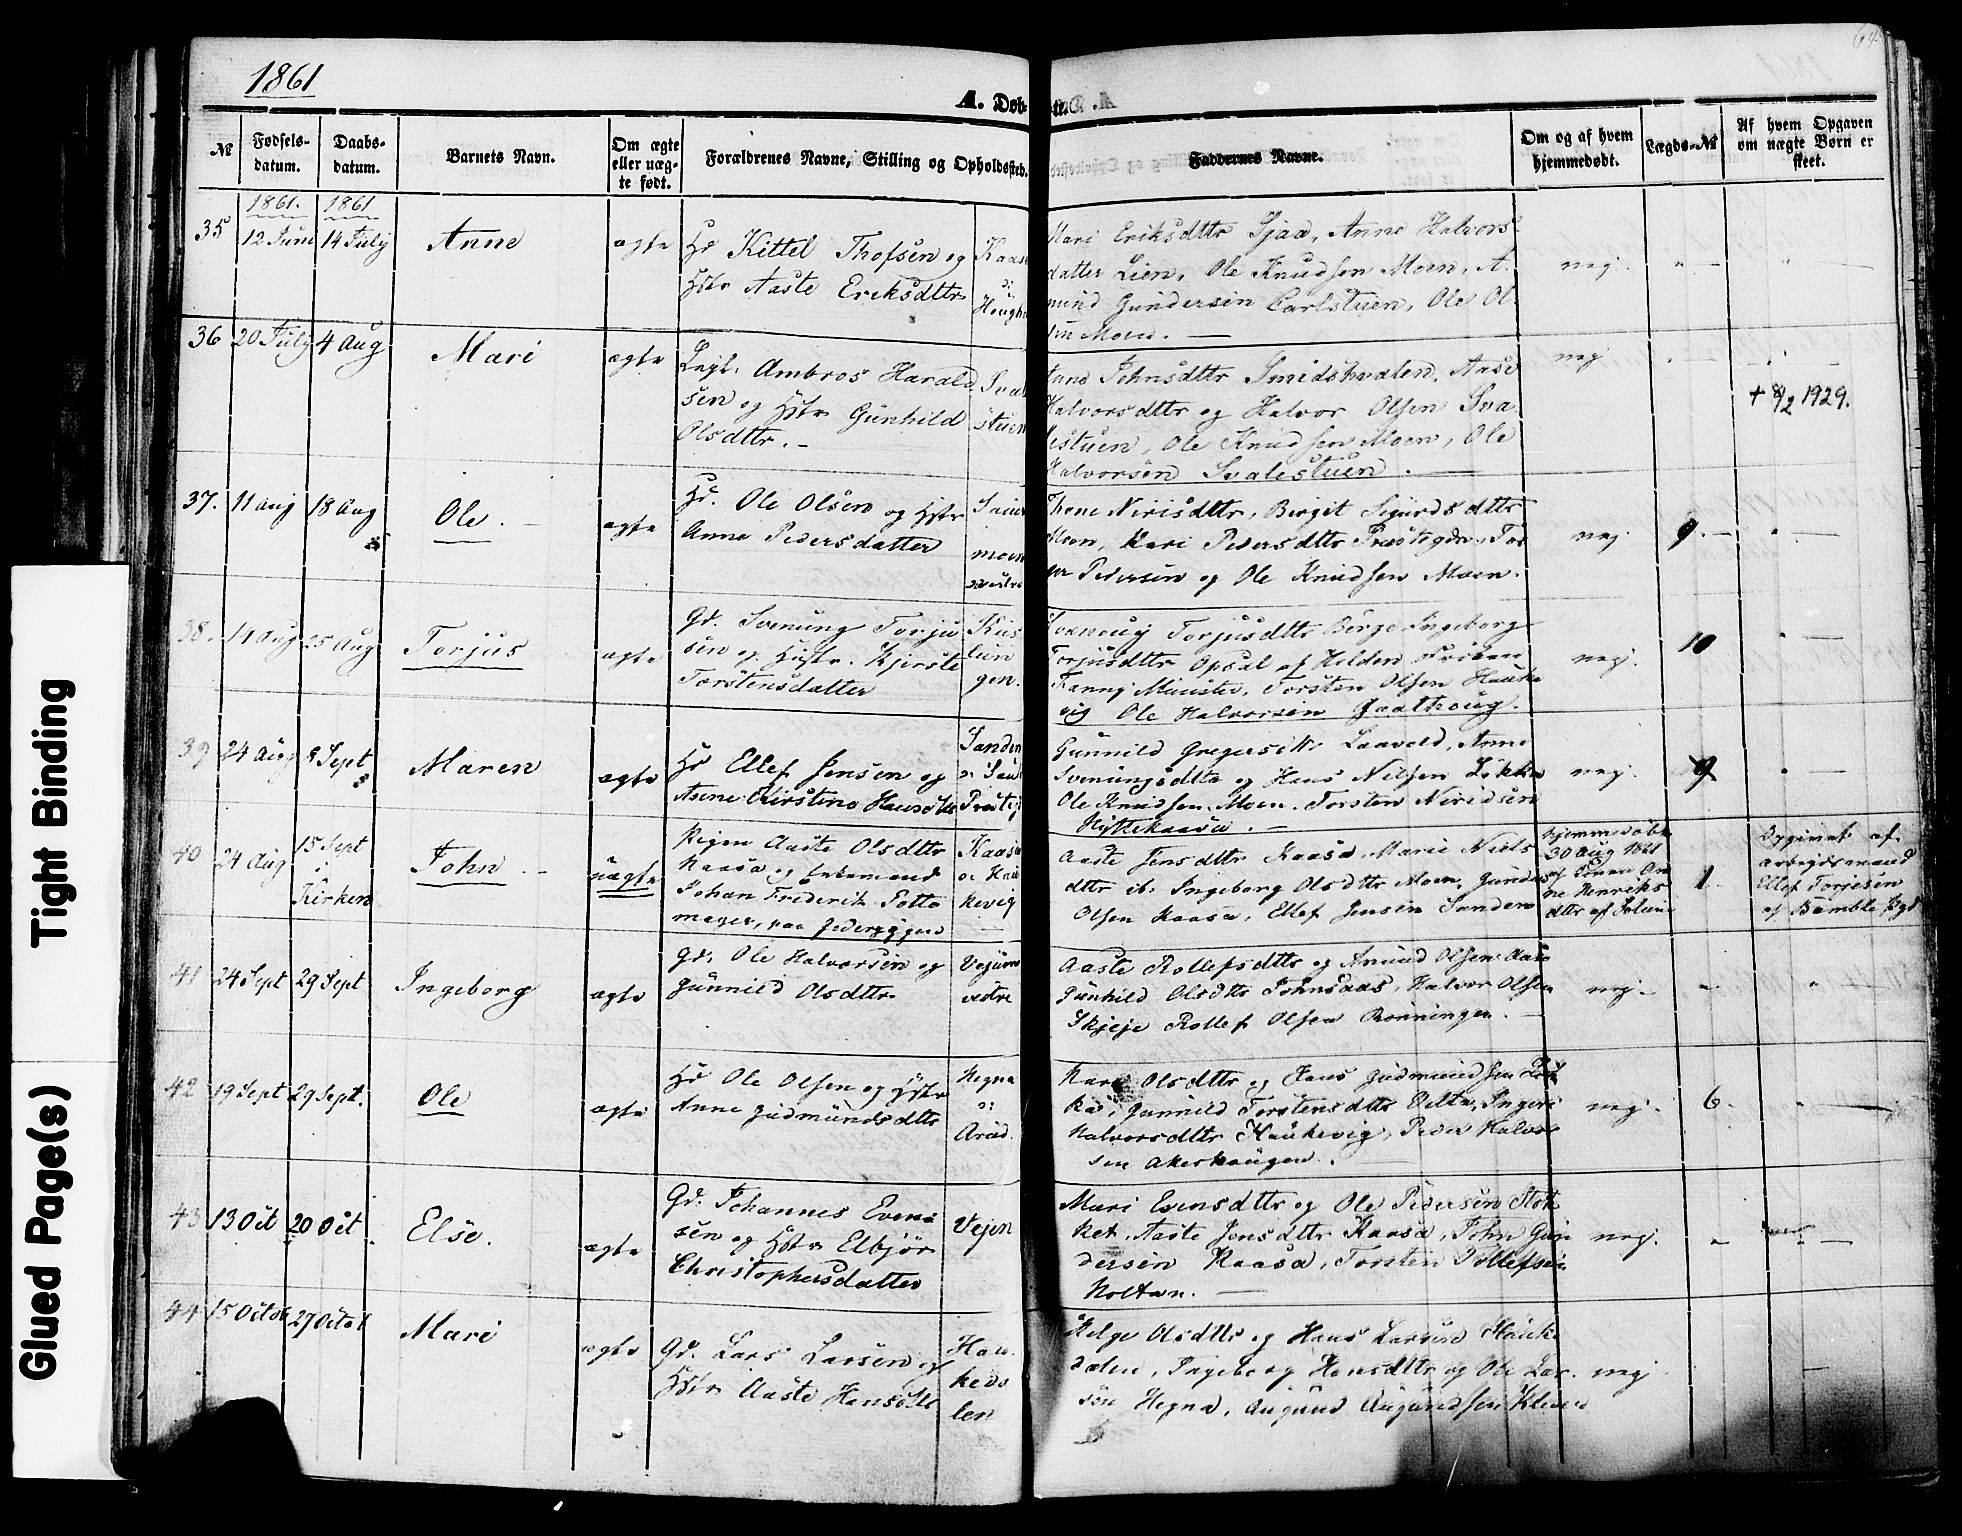 1861
64.
A. Døb-
te.
№
Fødsels-
datum.
Daabs-
datum.
Barnets Navn.
Om ægte
eller uæg-
te født.
Forældrenes Navne, Stilling og Opholdssted.
Faddernes Navne.
Om og af hvem
hjemmedøbt.
Lægds-№
Af hvem Opgaven
om uægte Børn er
skeet.
35
1861.
12 Juni
1861
14 July
Anne
ægte
Kittel Thofsen og
Hstr Aaste Eriksdttr
Mari Eriksdttr Sjaa, Anne Halvors-
datter Lien, Ole Knudsen Moen, A-
mund Gundersen Carlstuen, Ole Ol-
sen Moen. —
nej.
36
20 July
4 Aug
Mari
ægte
Ambros Harald
sen og Hstr Gunhild
Olsdttr. –
Sval
stuen
Johnsdttr Smedshvalen, Aase
Halvorsdttr og Halvor Olsen Sva-
lestuen, Ole Knudsen Moen, Ole
Halvorsen Svalestuen. —
nej
+ 8/2 1929.
37.
11 aug
18 Aug
Ole.
ægte
Ole Olsen og Hstr
Anne Pedersdatter
moen
Thone Nirisdttr, Birgit Sigurdsdttr
Moen, Kari Pedersdttr
Pedersen og Ole Knudsen Moen.
nej
9. —
38.
14 Aug
25 Aug
Torjus
ægte
Gd. Svenung Torju
sen og Hustr. Kjerste
Torstensdatter
gen.
Torjusdttr Berge, Ingeborg
Torjusdttr Opsal af Hilden
Fanny Minister, Torsten Olsen Hauke
vig Ole Halvorsen
nej.
10
39
24 Aug
8 Sept
Maren
ægte
Ellef Jensen og
Anne Kirstine Hansdttr
Sanden
Gunnild Laavold, Anne
Svenungsdttr og Hans Nilsen Løkka
Ole Knudsen Moen. Torsten Niridsen
Hyttekaasa. —
nej.
9
40
24 Aug
15 Sept
i
Kirken
John
uægte
Pigen Aaste Olsdttr
Kaasa og Enkemand
Johan Frederik Potte
mager, paa
Kaasa
Hau
kevig
Aaste Jensdttr Kaasa, Marie Niels
dttr ib. Ingeborg Olsdttr Moen, Gunder
Olsen Kaasa, Ellef Jensen Sanden
hjemmedøbt
30 Aug 1861
Henriks
dttr af
1.
arbejdsmand
Ellef Torjesen
af Bamble
41
24 Sept
29 Sept
Ingeborg
ægte
Gd. Ole Halvorsen og
Gunnild Olsdttr
vestre
Aaste Rollefsdttr og Amund Olsen
Gunhild Olsdttr Johnsaas, Halvor Olsen
Skjeje Rollef Olsen Rønningen. —
nej –
42
19 Sept
29 Sept.
Ole
ægte
Ole Olsen og Hstr
Anne Gudmundsdttr
Hegna
Kari Olsdttr og Hans Gudmundsen Løk
ka, Gunnild Torstensdttr Velta, Ingeri
Halvorsdttr Haukevig, Peder Halvor
sen Akerhaugen.
nej.
6.
43
13 Oct
20 Oct
Else.
ægte
Gd. Johannes Even-
sen og Hstr Elbjør
Christophersdatter
Vejen
Mari Evensdttr og Ole Pedersen Stok
ket, Aaste Jensdttr Kaasa, John Gun
dersen Kaasa, Torsten Tollefsen
Holtan. —
nej.
44
15 Octob
27 Octob
Mari
ægte
Gd. Lars Larsen og
Hstr Aaste Hansdttr
Hau-
keda
len
Helge Olsdttr og Hans Larsen Hauke
dalen, Ingeborg Hansdttr og Ole Lar-
sen Hegna, Augund Augundsen Kleven
nej
Tight Binding
Glued Page(s)